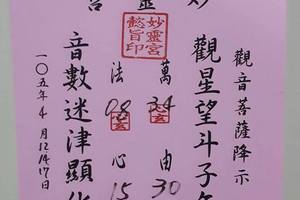 妙靈宮
妙靈宮
懿旨印
觀音菩薩降示
觀星望斗子
萬 34 由 30
法 08 心 15
音數迷津顯化
一〇五年4月12.14.17日